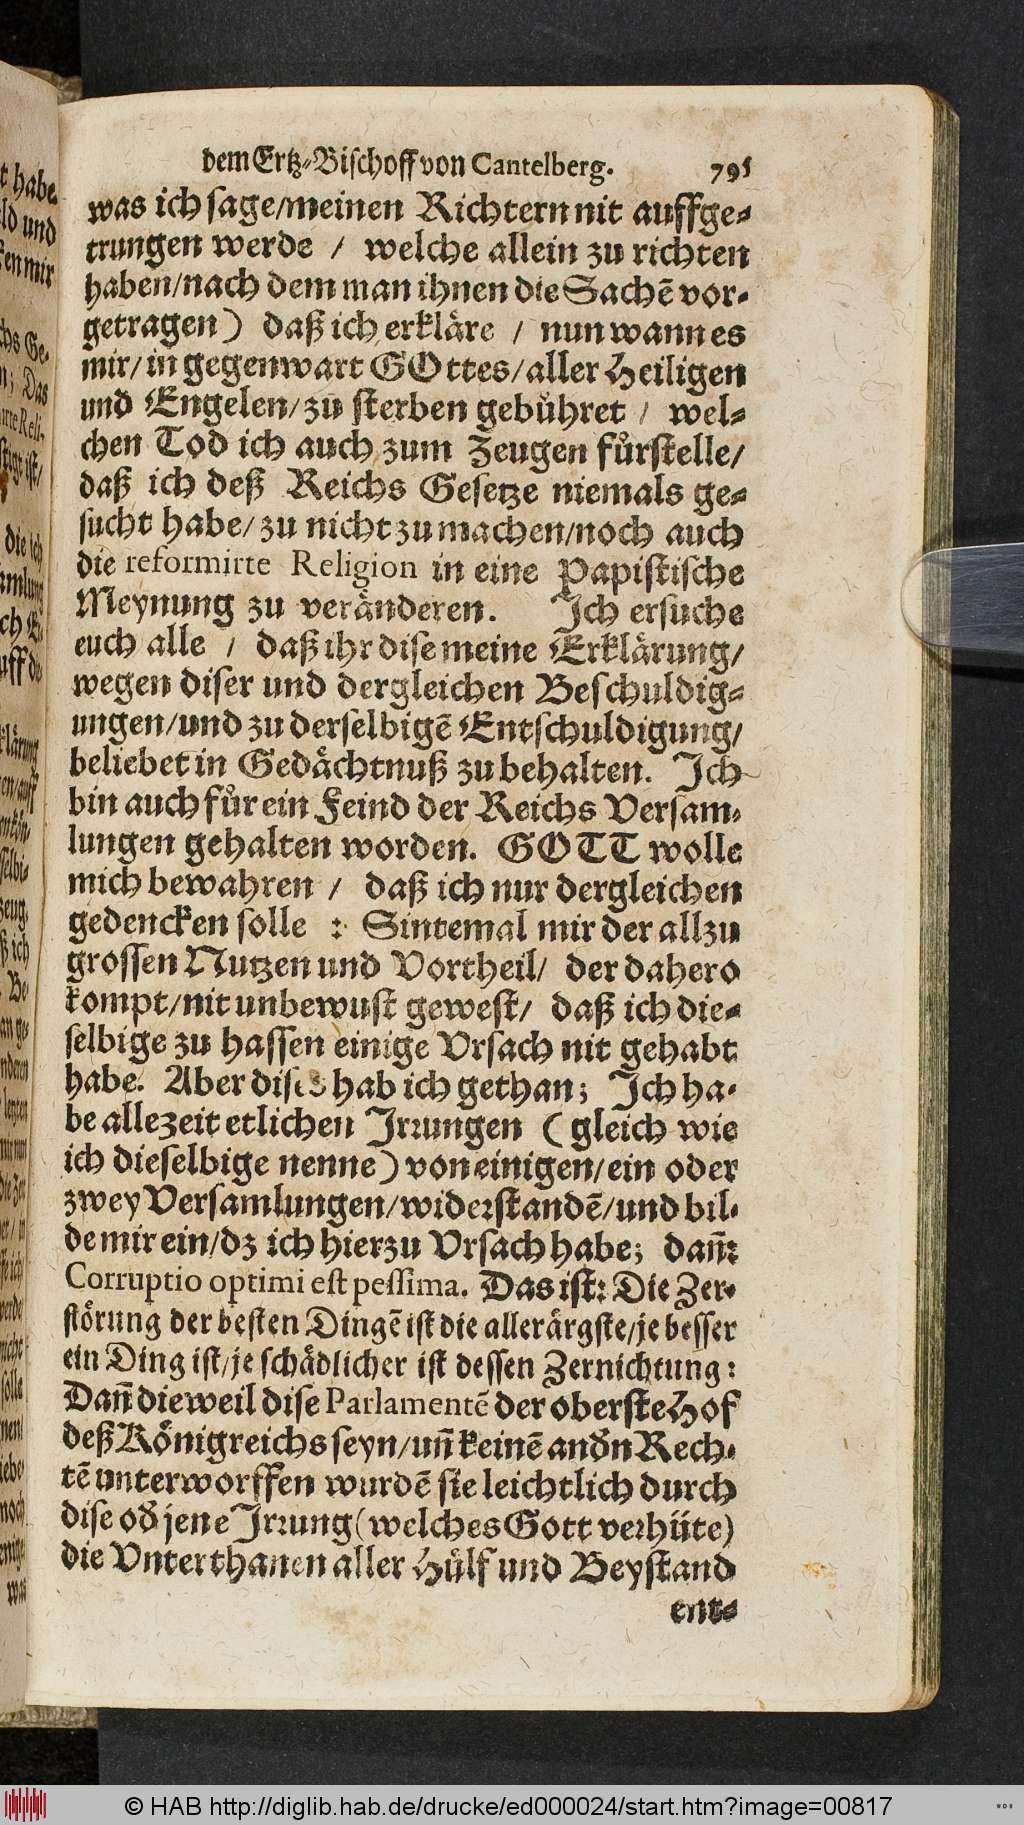 dem Ertz-Bischoff von Cantelberg. 795
was ich sage/meinen Richtern nit auffge-
trungen werde / welche allein zu richten
haben/nach dem man ihnen die Sachē vor-
getragen) daß ich erkläre / nun wann es
mir/in gegenwart GOttes/aller Heiligen
und Engelen/zu sterben gebühret / wel-
chen Tod ich auch zum Zeugen fürstelle/
daß ich deß Reichs Gesetze niemals ge-
sucht habe/zu nicht zu machen/noch auch
die reformirte Religion in eine Papistische
Meynung zu veränderen. Ich ersuche
euch alle / daß ihr dise meine Erklärung/
wegen diser und dergleichen Beschuldig-
ungen/und zu derselbigē Entschuldigung/
beliebet in Gedächtnuß zu behalten. Ich
bin auch für ein Feind der Reichs Versam-
lungen gehalten worden. GOTT wolle
mich bewahren / daß ich nur dergleichen
gedencken solle : Sintemal mir der allzu
grossen Nutzen und Vortheil/ der dahero
kompt/nit unbewust gewest/ daß ich die-
selbige zu hassen einige Vrsach nit gehabt
habe. Aber dises hab ich gethan; Ich ha-
be allezeit etlichen Irrungen (gleich wie
ich dieselbige nenne) von einigen/ein oder
zwey Versamlungen/widerstandē/und bil-
de mir ein/dz ich hierzu Vrsach habe; dañ:
Corruptio optimi est pessima. Das ist: Die Zer-
störung der besten Dingē ist die allerärgste/je besser
ein Ding ist/je schädlicher ist dessen Zernichtung:
Dañ dieweil dise Parlamentē der oberste Hof
deß Königreichs seyn/uñ keinē andn Rech-
tē unterworffen wurdē sie leichtlich durch
dise od jene Irrung (welches Gott verhüte)
die Vnterthanen aller Hülf und Beystand
ent-
© HAB http://diglib.hab.de/drucke/ed000024/start.htm?image=00817